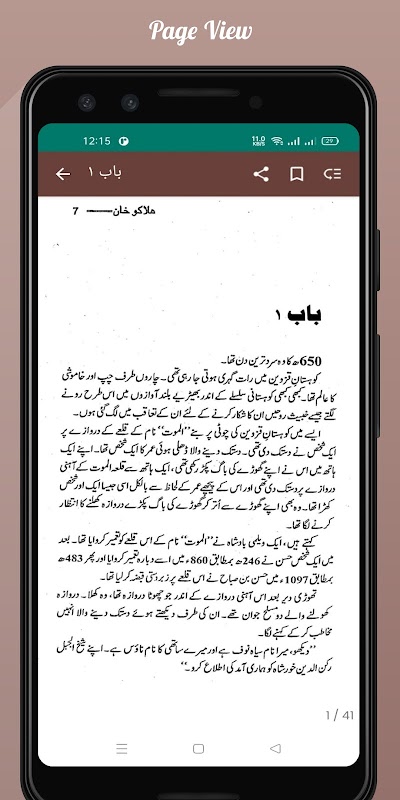 Page View
12:15
11.0 KB/S
29
باب ۱
ھلاکو خان ——— 7
باب ۱
650ھ کا وہ سرد ترین دن تھا۔
کوہستانِ قزوین میں رات گہری ہوتی جا رہی تھی۔ چاروں طرف چپ اور خاموشی
کا عالم تھا۔ کبھی کبھی کوہستانی سلسلے کے اندر بھیڑیے بلند آوازوں میں اس طرح رونے
لگتے جیسے خبیث روحیں ان کا شکار کرنے کے لئے ان کے تعاقب میں لگ گئی ہوں۔
ایسے میں کوہستانِ قزوین کی چوٹی پر بنے ”الموت“ نام کے قلعے کے دروازے پر
ایک شخص نے دستک دی تھی۔ دستک دینے والا ڈھلتی ہوئی عمر کا ایک شخص تھا۔ اپنے ایک
ہاتھ میں اس نے اپنے گھوڑے کی باگ پکڑ رکھی تھی، ایک ہاتھ سے قلعہ الموت کے آہنی
دروازے پر دستک دی تھی اور اس کے پیچھے عمر کے لحاظ سے بالکل اسی جیسا ایک اور شخص
کھڑا تھا۔ وہ بھی اپنے گھوڑے سے اُتر کر گھوڑے کی باگ پکڑے دروازہ کھلنے کا انتظار
کرنے لگا تھا۔
کہتے ہیں، ایک ویلمی بادشاہ نے ”الموت“ نام کے اس قلعے کو تعمیر کروایا تھا۔ بعد
میں ایک شخص حسن نے 246ھ بمطابق 860ء میں اسے دوبارہ تعمیر کروایا اور پھر 483ھ
بمطابق 1097ء میں حسن بن صباح نے اس قلعے پر زبردستی قبضہ کر لیا تھا۔
تھوڑی دیر بعد اس آہنی دروازے کے اندر جو چھوٹا دروازہ تھا، وہ کھلا۔ دروازہ
کھولنے والے دو مسلح جوان تھے۔ ان کی طرف دیکھتے ہوئے دستک دینے والا انہیں
مخاطب کر کے کہنے لگا۔
”دیکھو، میرا نام سیاہ نوف ہے اور میرے ساتھی کا نام ناؤس ہے۔ اپنے شیخ الجبل
رکن الدین خورشاہ کو ہماری آمد کی اطلاع کرو۔“
1 / 41